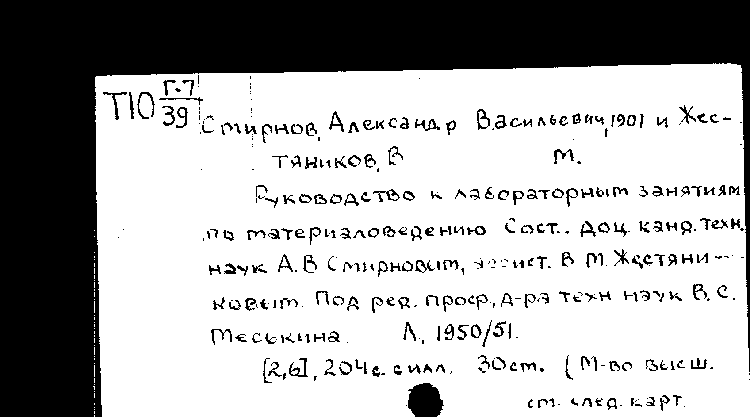 Т10 Г-7
39
Смирнов, Александр Васильевич, 1901 и Жес-
тяников, В М.
Руководство к лабораторным занятиям
по материаловедению Сост.. доц. канд. техн.
наук А.В Смирновым, ассист. В М. Жестяни-
ковым. Под ред. проф., д-ра техн наук В.С.
Меськина. Л, 1950/51.
[2,6], 204 с. с илл. 30 см. (М-во высш.
см. след. карт.